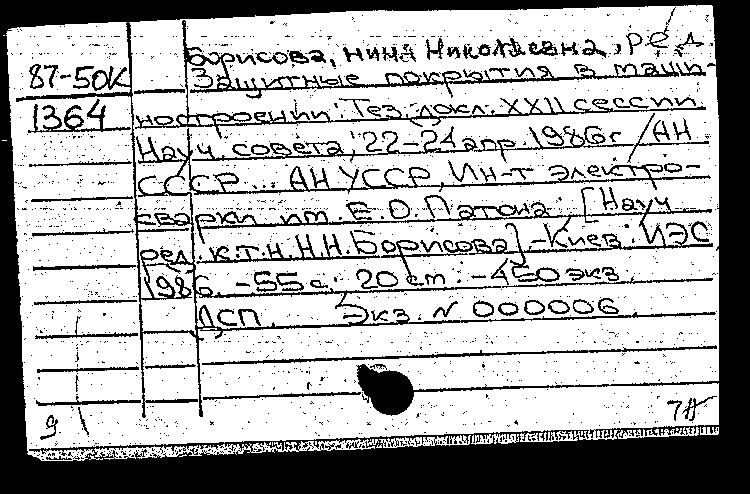 Борисова, Нина Николаевна, ред.
87-50к Защитные покрытия в маши-
1364 ностроении: Тез. докл. XXII сессии
Науч. совета, 22-24 апр. 1986 г. / АН
СССР... АН УССР, Ин-т электро-
сварки им. Е.О. Патона; [Науч.
ред. к.т.н. Н.Н. Борисова]. - Киев: ИЭС,
1986. - 55 с.; 20 см. - 450 экз.
ДСП. Экз. N 000006.
9